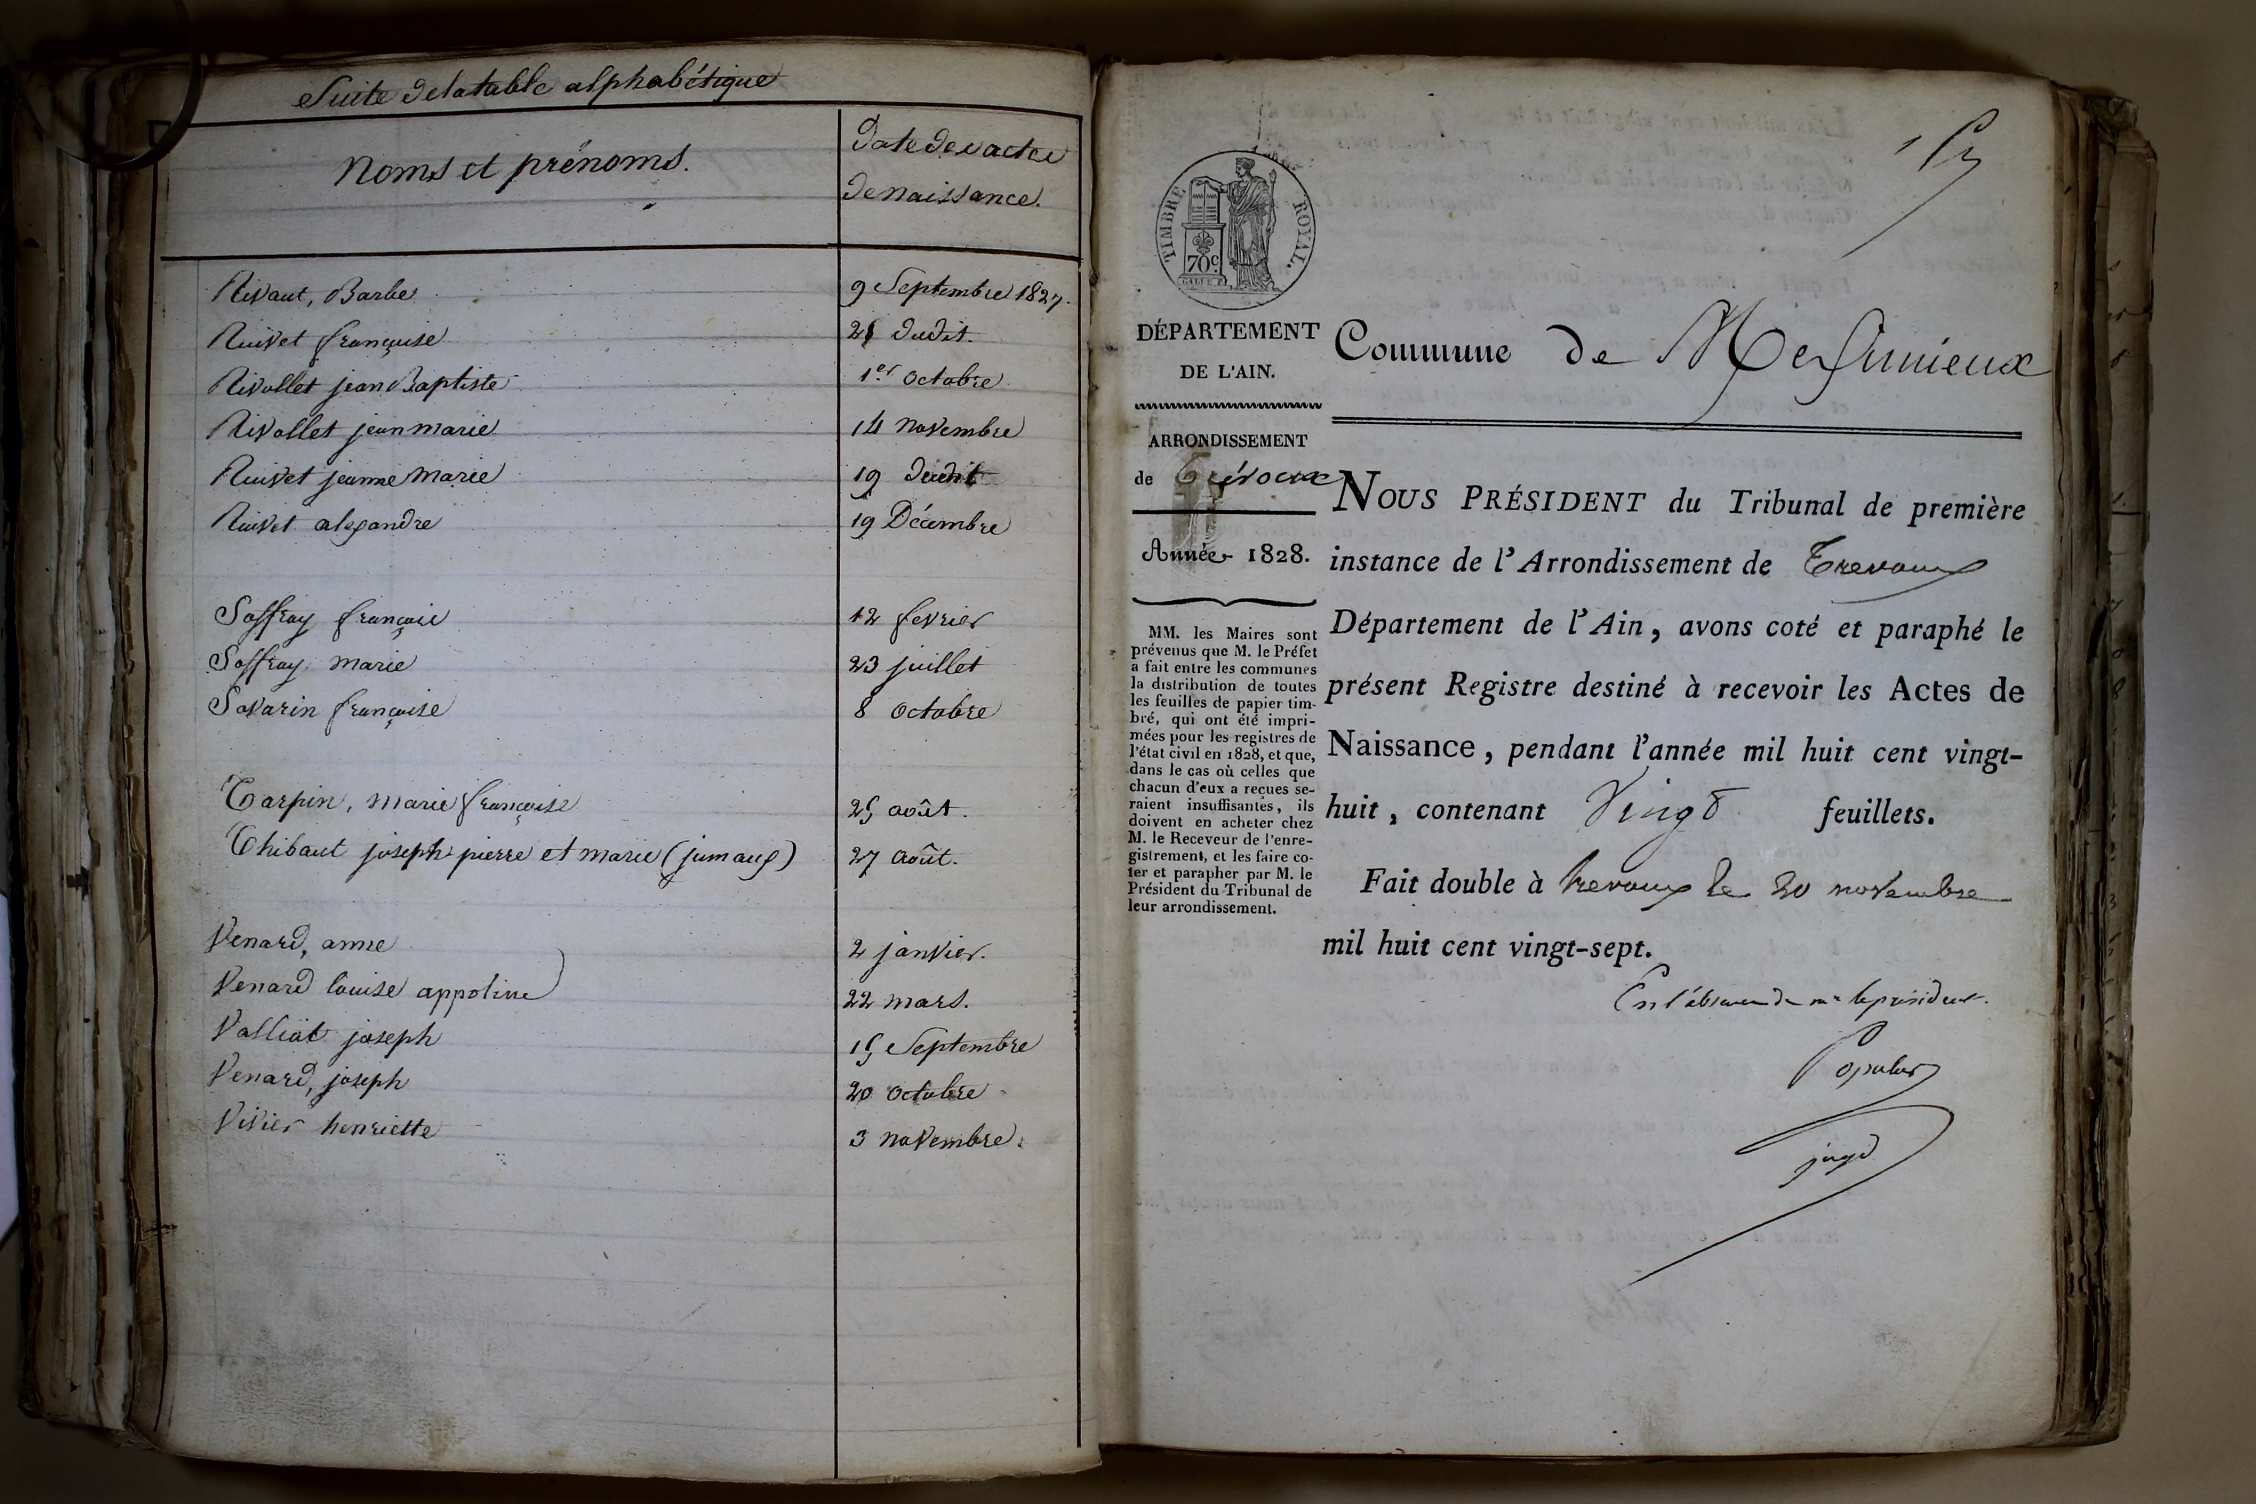 Suite de la table alphabétique
Noms et prénoms.
Date des actes
de naissance.
Rivaut, Barbe 9 Septembre 1827.
Ruivet françoise 21 dudit.
Rivollet jean Baptiste 1.er octobre
Rivollet jean marie 14 novembre
Ruivet jeanne marie 19 dudit
Ruivet alexandre 19 Décembre
Soffray françois 12 fevrier
Soffray marie 23 juillet
Savarin françoise 8 octobre
Tarpin, marie françoise 25 août.
Thibaut joseph pierre et marie (jumaux) 27 août.
Venard, anne 2 janvier.
Venard louise appoline 22 mars.
Valliat joseph 15 Septembre
Venard, joseph 20 octobre
Vivier henriette 3 novembre.
1
TIMBRE ROYAL.
70c.
DÉPARTEMENT
DE L'AIN.
Commune de Meximieux
ARRONDISSEMENT
de Trévoux
Année 1828.
MM. les Maires sont
prévenus que M. le Préfet
a fait entre les communes
la distribution de toutes
les feuilles de papier tim-
bré, qui ont été impri-
mées pour les registres de
l'état civil en 1828, et que,
dans le cas où celles que
chacun d'eux a reçues se-
raient insuffisantes, ils
doivent en acheter chez
M. le Receveur de l'enre-
gistrement, et les faire co-
ter et parapher par M. le
Président du Tribunal de
leur arrondissement.
NOUS PRÉSIDENT du Tribunal de première
instance de l'Arrondissement de Trevoux
Département de l'Ain, avons coté et paraphé le
présent Registre destiné à recevoir les Actes de
Naissance, pendant l'année mil huit cent vingt-
huit, contenant Vingt feuillets.
Fait double à trevoux le 20 novembre
mil huit cent vingt-sept.
En l'absence de mr le président.
juge